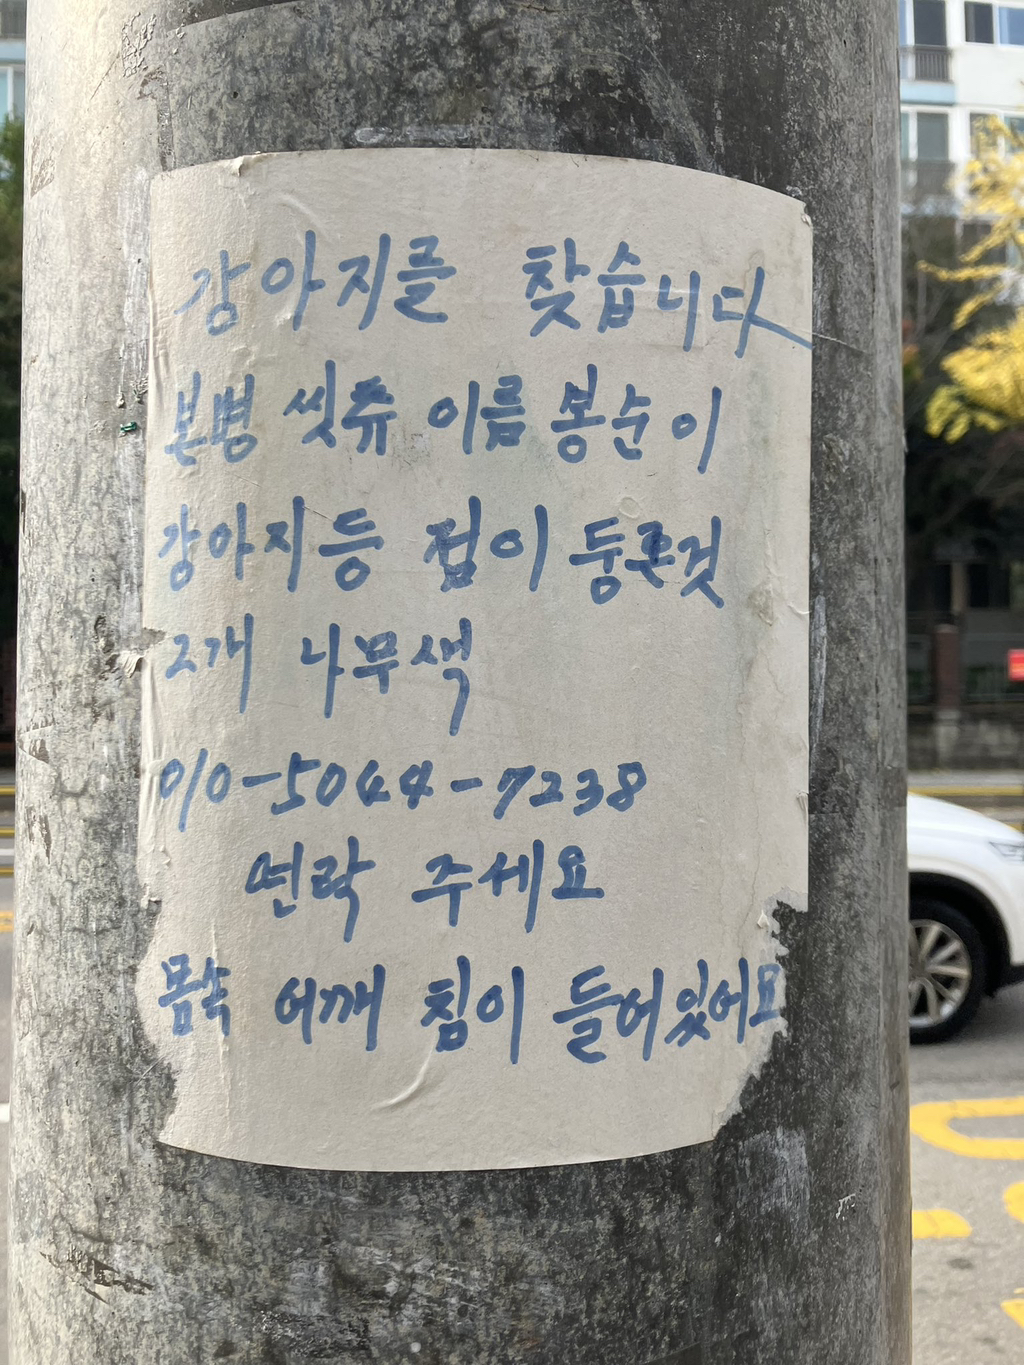 강아지를 찾습니다
본명 씻쥬 이름 봉순이
강아지등 점이 둥른것
2개 나무색
010-5044-7238
연락 주세요
몸속 어깨 침이 들어있어요